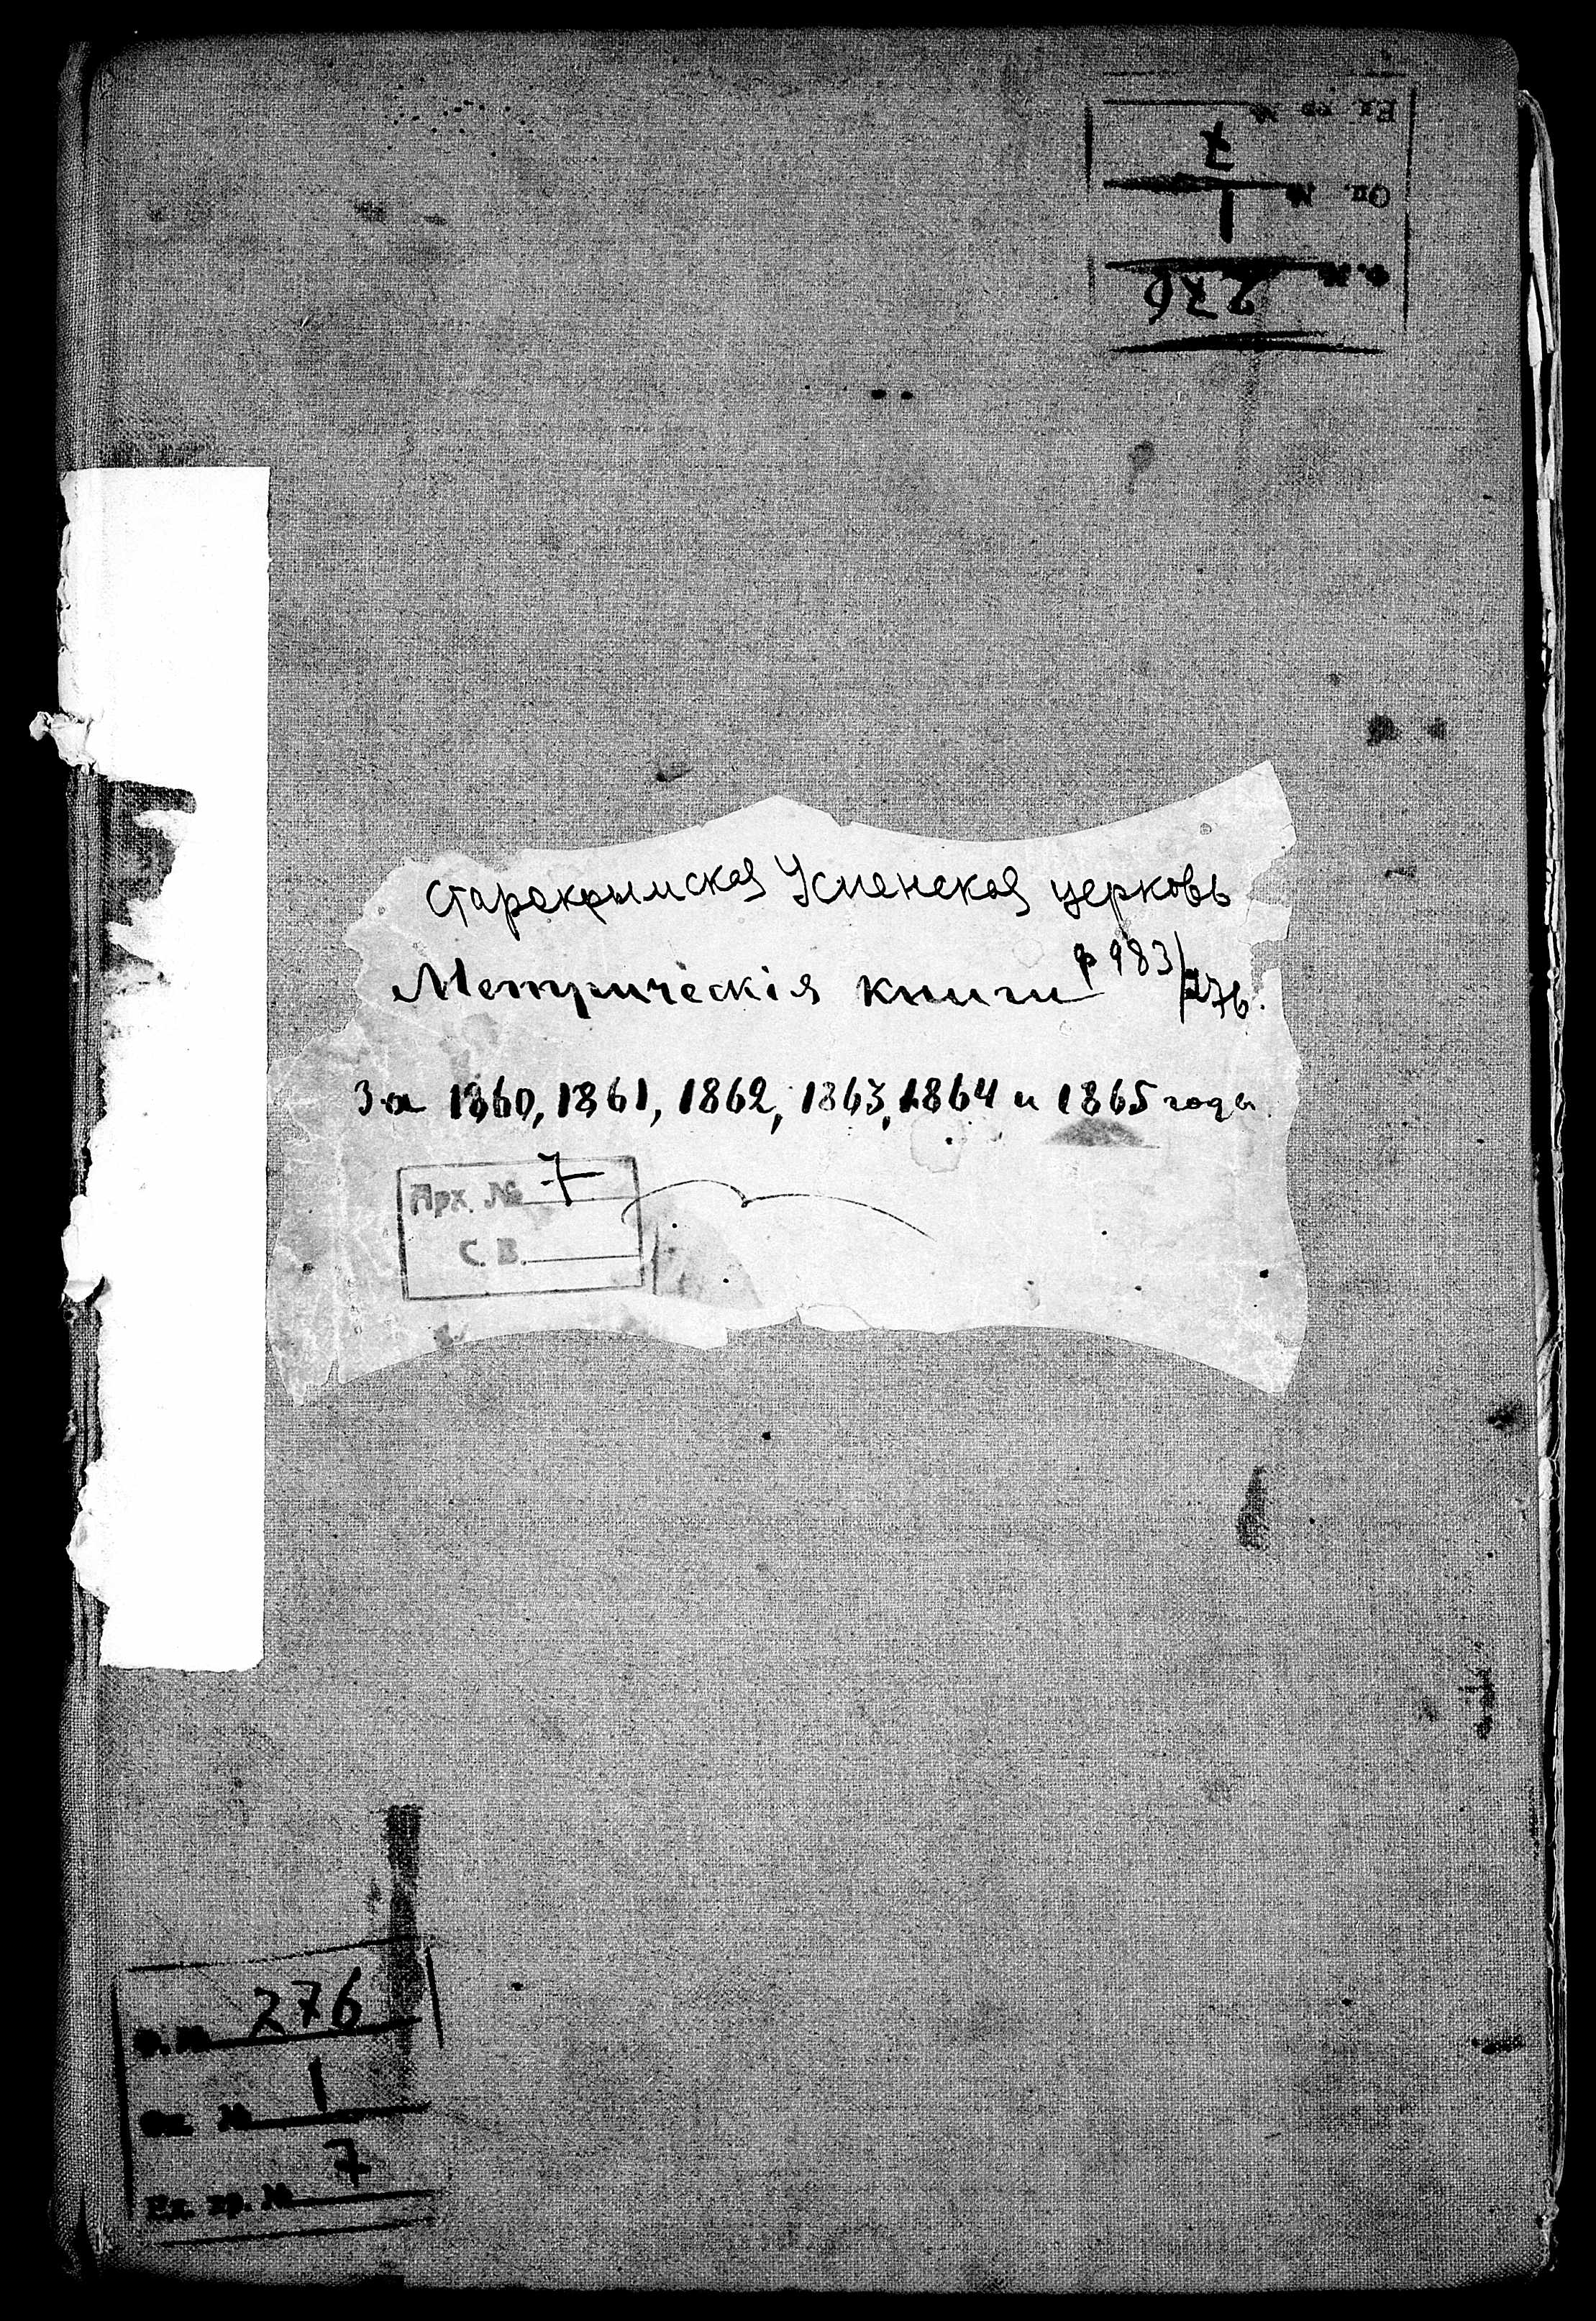 Ф. № 276
Оп. № 1
Ед. хр. № 7
старокрымская Успенская церковь
Метрическія книги ф 983/276.
За 1860, 1861, 1862, 1863, 1864 и 1865 годы.
Арх. № 7
С. В.
Ф. № 276
Оп. № 1
Ед. хр. № 7